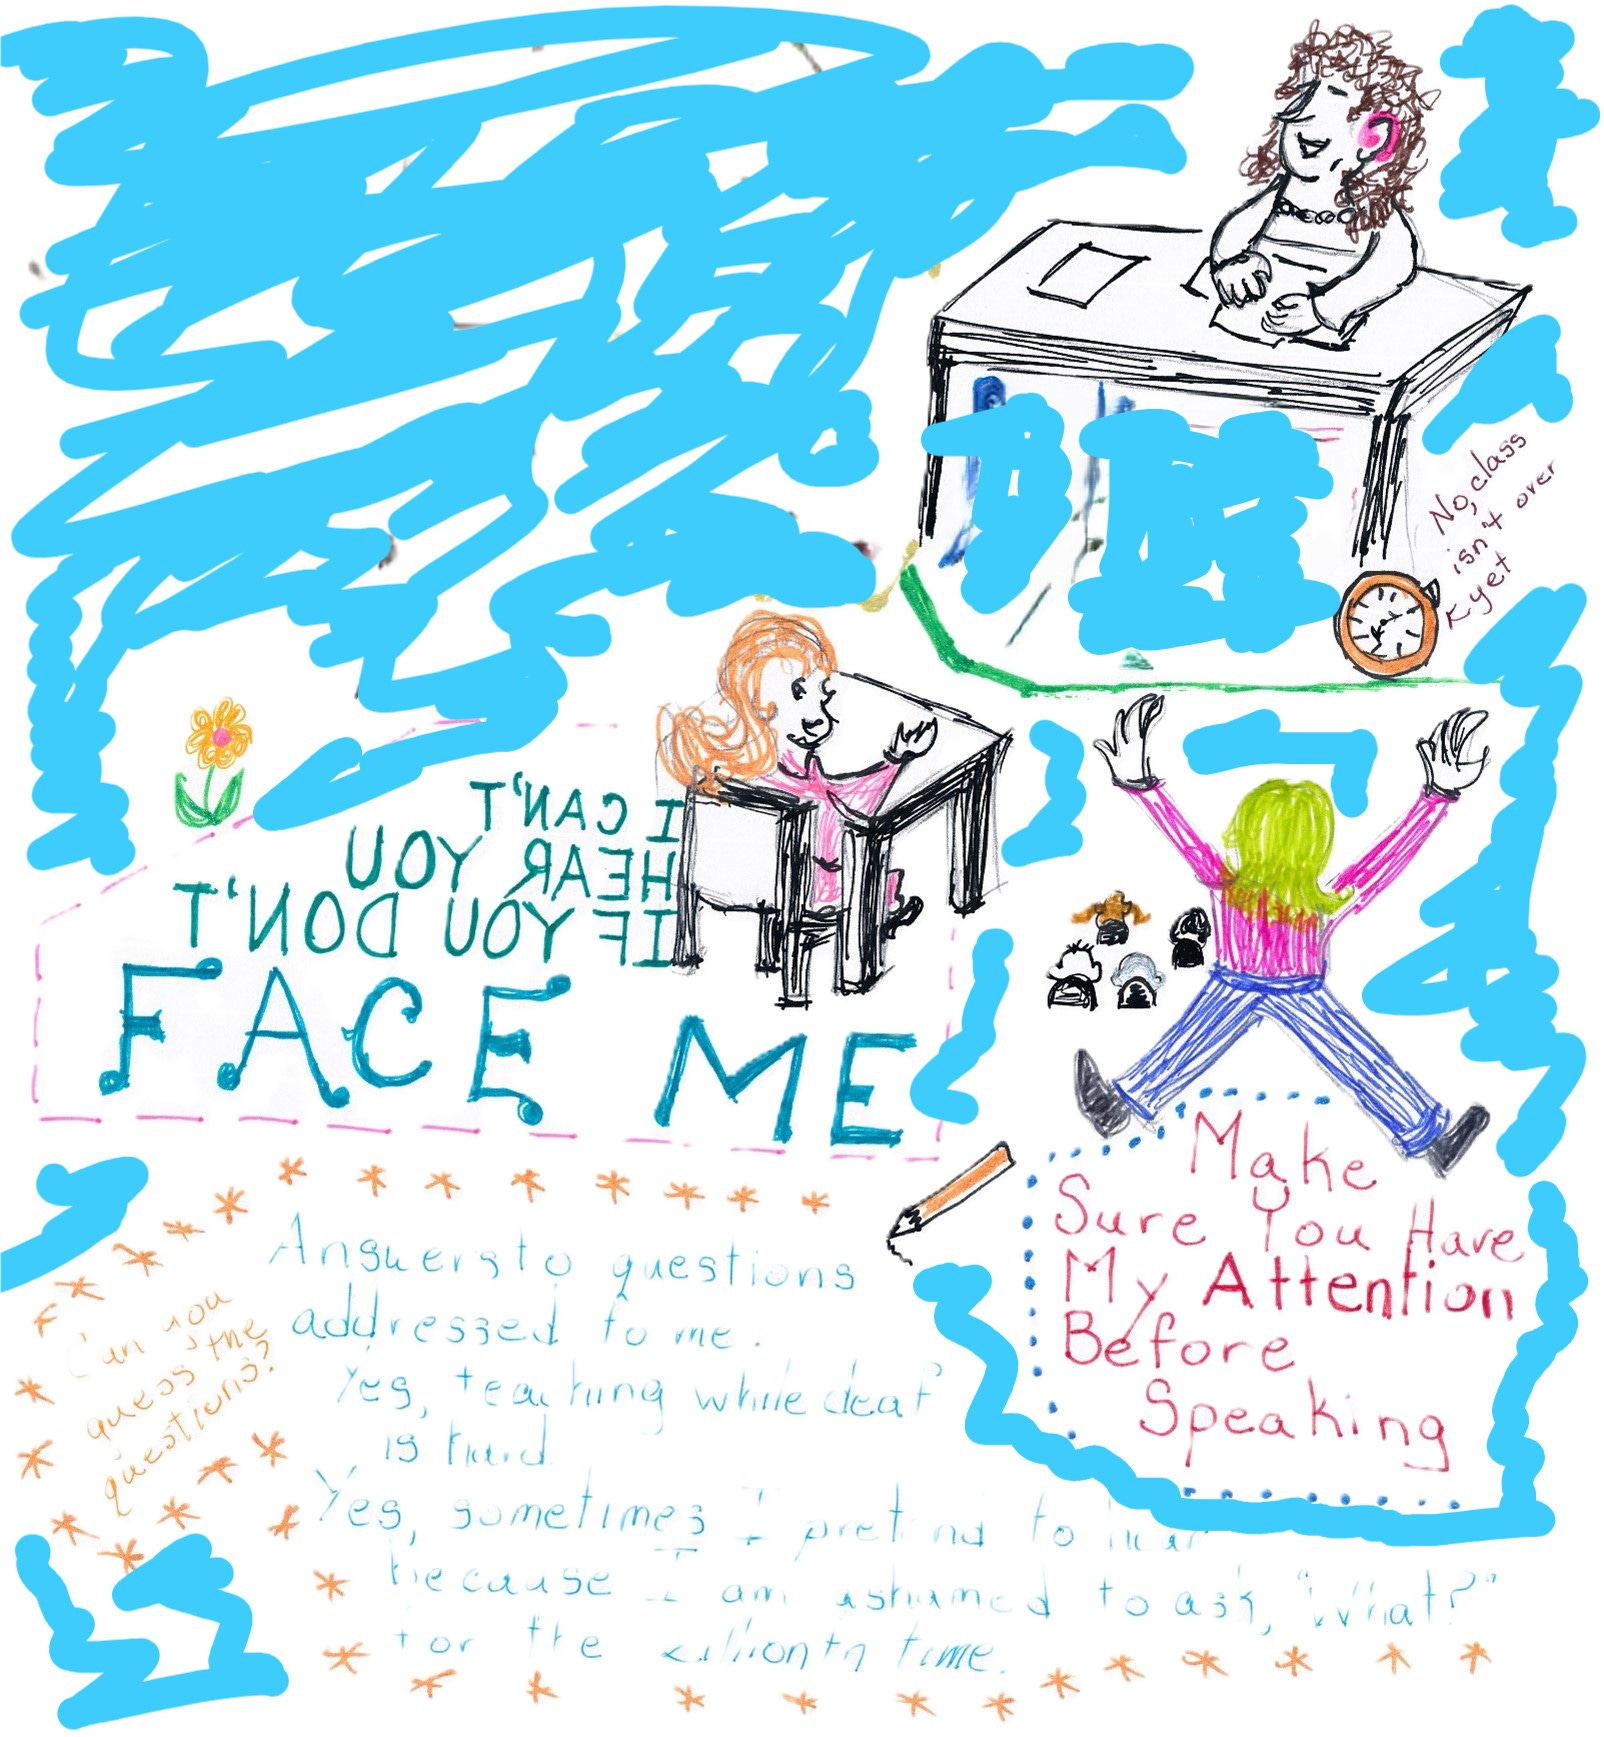 No, class
isn't over
yet
I CAN'T
HEAR YOU
IF YOU DON'T
FACE ME
Make
Sure You Have
My Attention
Before
Speaking
Can you
guess the
questions?
Answers to questions
addressed to me.
Yes, teaching while deaf
is hard.
Yes, sometimes I pretend to hear
because I am ashamed to ask, "What?"
for the zillionth time.